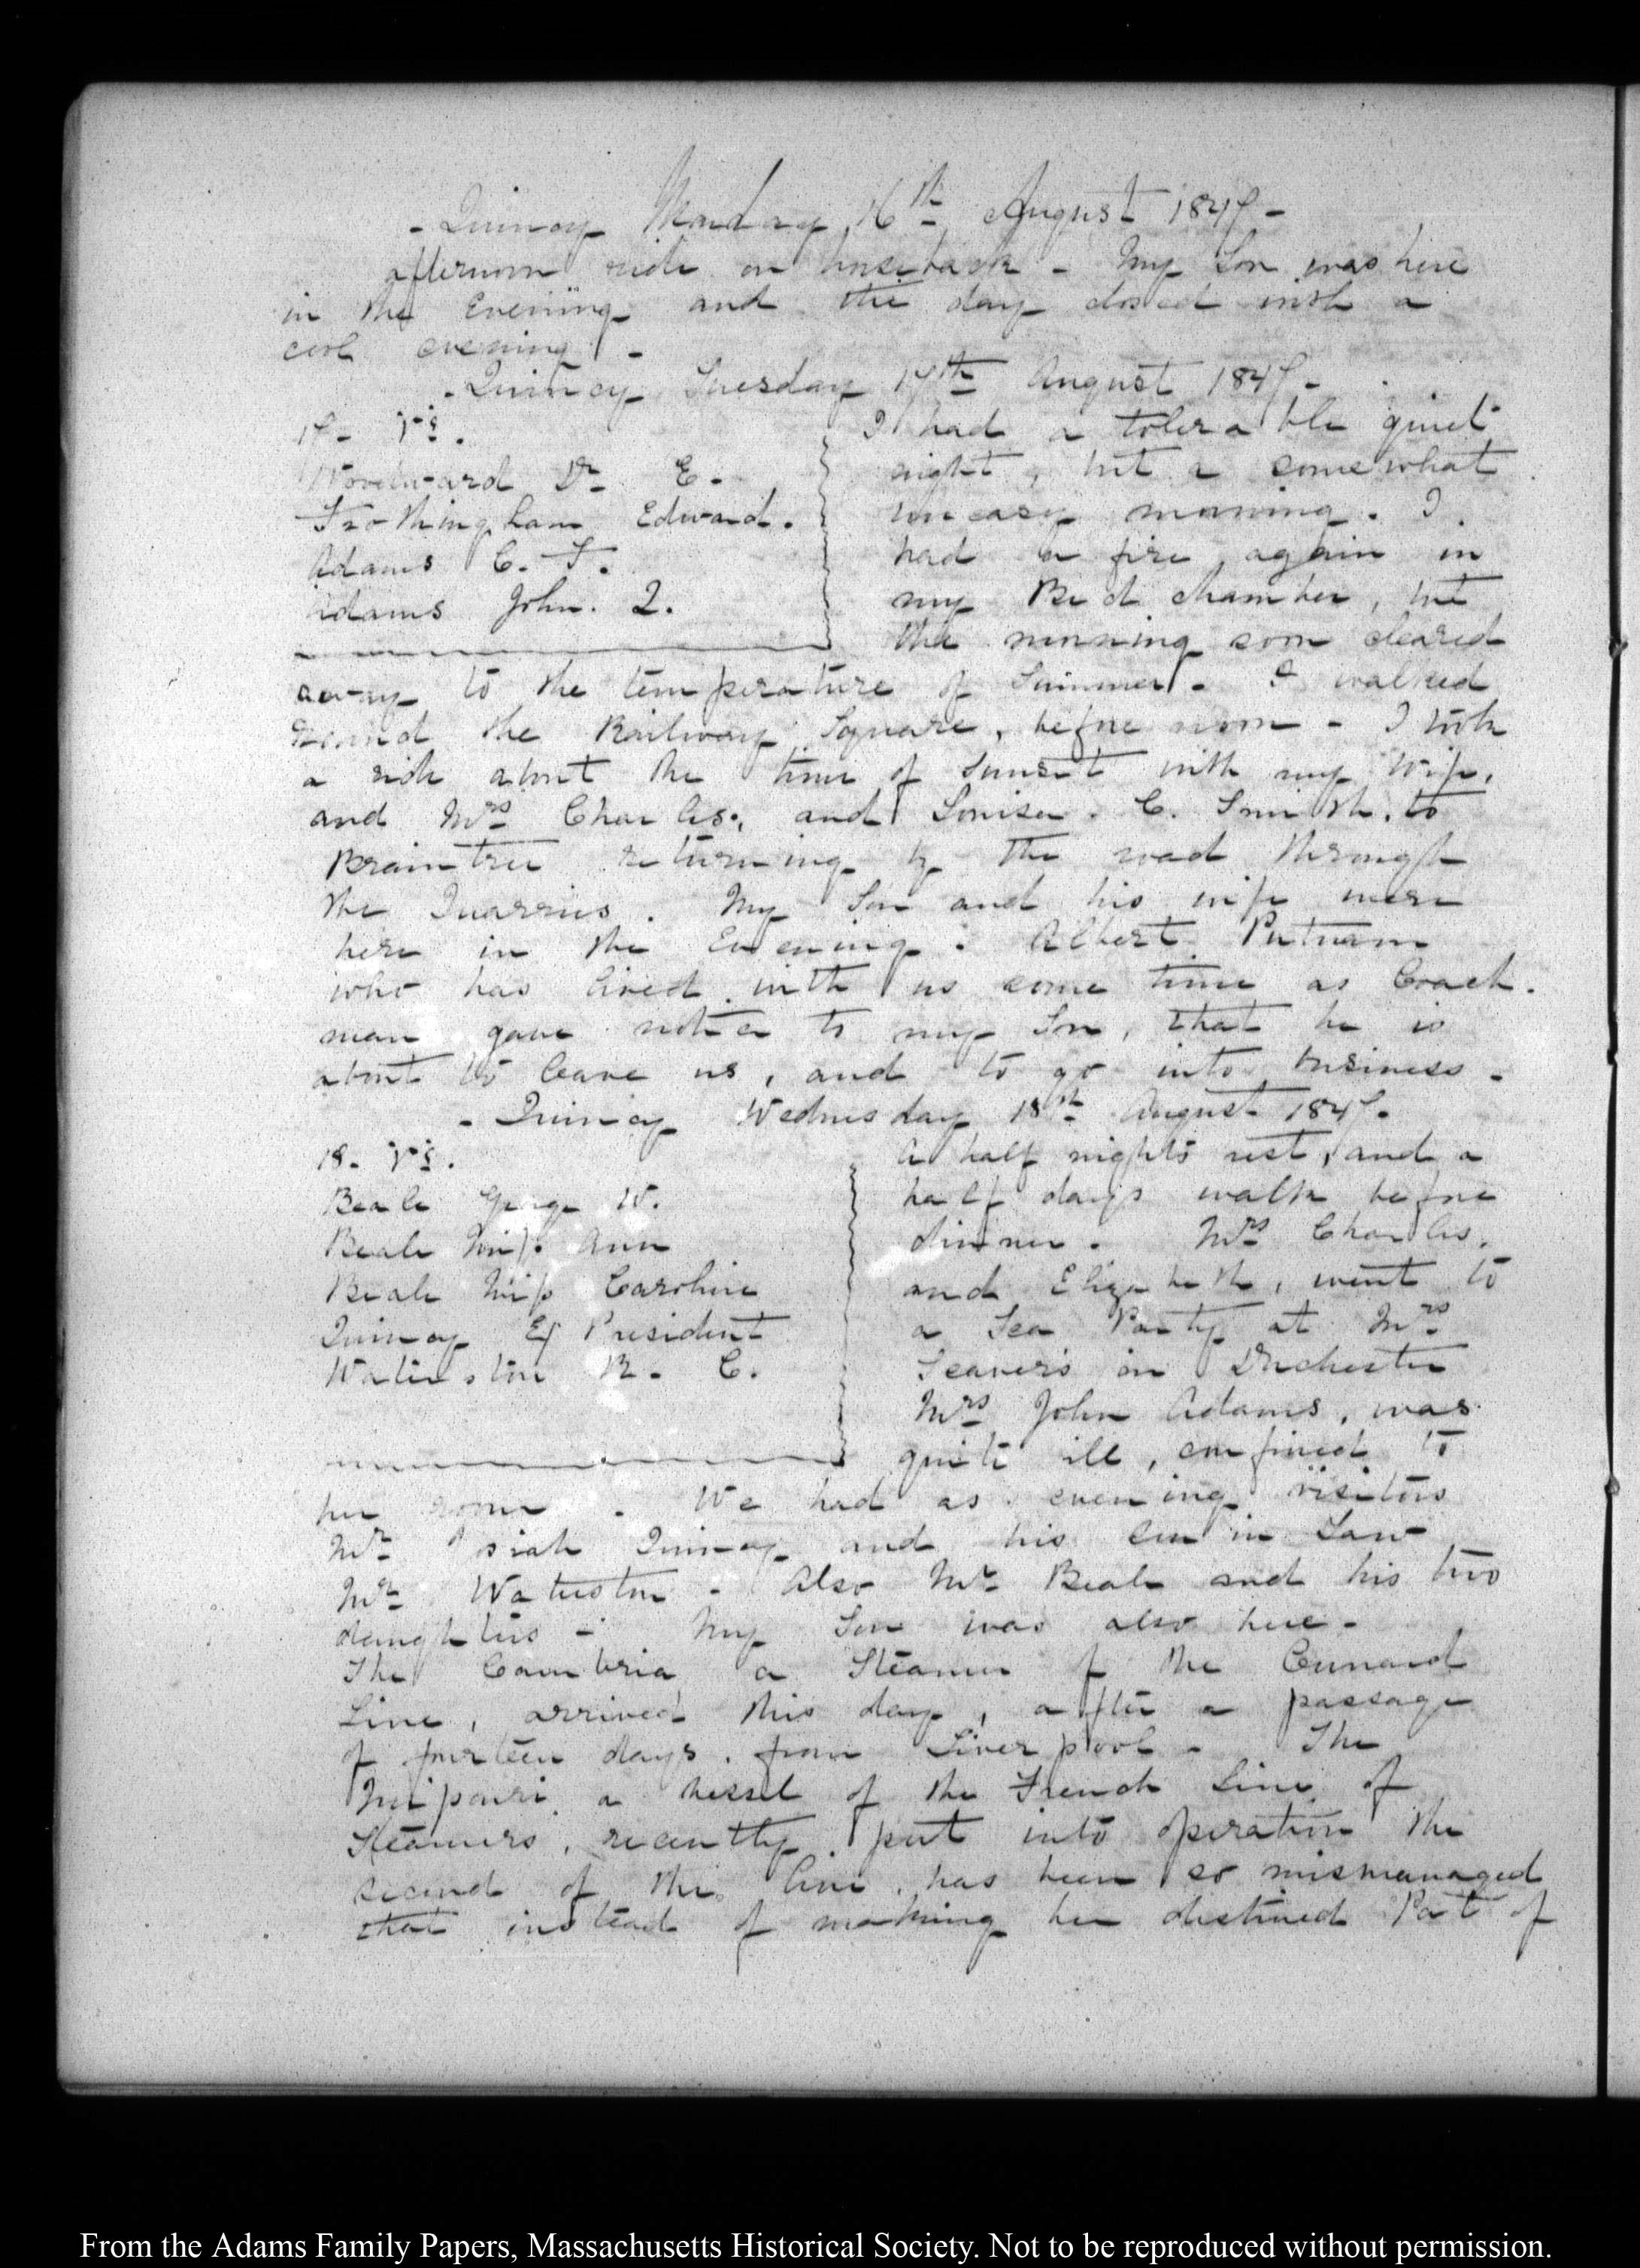 - Quincy Monday 16th August 1847 -
afternoon ride on horseback - My Son was here
in the Evening and the day closed with a
cool evening -
- Quincy Tuesday 17th August 1847 -
17- V:s.
Woodward Dr E.
Frothingham Edward.
Adams C. F.
Adams John. Q.
I had a tolerable quiet
night, but a somewhat
uneasy morning. I
had a fire again in
my Bed chamber, but
the morning soon cleared
away to the temperature of Summer - I walked
round the Railway Square, before noon - I took
a ride about the time of Sunset with my Wife,
and Mrs Charles, and Louisa. C. Smith, to
Braintree returning by the road through
the Quarries. My Son and his wife were
here in the Evening. Albert Putnam
who has lived with us some time as Coach-
man gave notice to my Son, that he is
about to leave us, and to go into business -
- Quincy Wednesday 18th August 1847.
18. V:s.
Beale George W.
Beale Miss Ann
Beale Miss Caroline
Quincy Ex President
Waterston R. C.
A half nights rest, and a
half days walk before
dinner. Mrs Charles,
and Elizabeth, went to
a Tea Party at Mrs
Seaver's in Dorchester
Mrs John Adams, was
quite ill, confined to
her room. We had as evening visitors
Mr Josiah Quincy and his Son in Law
Mr Waterston - Also Mr Beale and his two
daughters - My Son was also here -
The Cambria, a Steamer of the Cunard
Line, arrived this day, after a passage
of fourteen days, from Liverpool - The
Missouri a vessel of the French Line of
Steamers, recently put into operation the
second of the line, has been so mismanaged
that instead of making her destined Port of
From the Adams Family Papers, Massachusetts Historical Society. Not to be reproduced without permission.